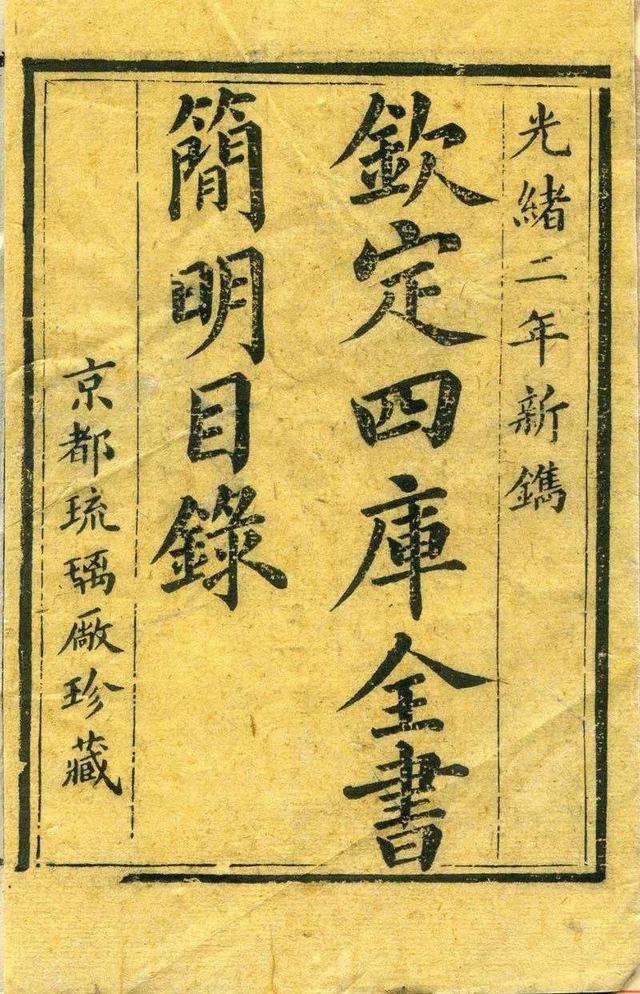 光緒二年新鐫
欽定四庫全書
簡明目錄
京都琉璃厰珍藏